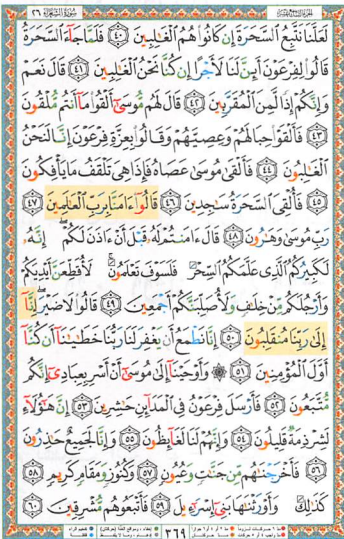 سورة الشعراء ٢٦
لَعَلَّنَا نَتَّبِعُ السَّحَرَةَ إِن كَانُوا هُمُ الْغَالِبِينَ ٤٠ فَلَمَّا جَاءَ السَّحَرَةُ
قَالُوا لِفِرْعَوْنَ أَئِنَّ لَنَا لَأَجْرًا إِن كُنَّا نَحْنُ الْغَالِبِينَ ٤١ قَالَ نَعَمْ
وَإِنَّكُمْ إِذًا لَّمِنَ الْمُقَرَّبِينَ ٤٢ قَالَ لَهُم مُّوسَىٰ أَلْقُوا مَا أَنتُم مُّلْقُونَ
٤٣ فَأَلْقَوْا حِبَالَهُمْ وَعِصِيَّهُمْ وَقَالُوا بِعِزَّةِ فِرْعَوْنَ إِنَّا لَنَحْنُ
الْغَالِبُونَ ٤٤ فَأَلْقَىٰ مُوسَىٰ عَصَاهُ فَإِذَا هِيَ تَلْقَفُ مَا يَأْفِكُونَ
٤٥ فَأُلْقِيَ السَّحَرَةُ سَاجِدِينَ ٤٦ قَالُوا آمَنَّا بِرَبِّ الْعَالَمِينَ ٤٧
رَبِّ مُوسَىٰ وَهَارُونَ ٤٨ قَالَ آمَنتُمْ لَهُ قَبْلَ أَنْ آذَنَ لَكُمْ إِنَّهُ
لَكَبِيرُكُمُ الَّذِي عَلَّمَكُمُ السِّحْرَ فَلَسَوْفَ تَعْلَمُونَ لَأُقَطِّعَنَّ أَيْدِيَكُمْ
وَأَرْجُلَكُم مِّنْ خِلَافٍ وَلَأُصَلِّبَنَّكُمْ أَجْمَعِينَ ٤٩ قَالُوا لَا ضَيْرَ إِنَّا
إِلَىٰ رَبِّنَا مُنقَلِبُونَ ٥٠ إِنَّا نَطْمَعُ أَن يَغْفِرَ لَنَا رَبُّنَا خَطَايَانَا أَن كُنَّا
أَوَّلَ الْمُؤْمِنِينَ ٥١ ۞ وَأَوْحَيْنَا إِلَىٰ مُوسَىٰ أَنْ أَسْرِ بِعِبَادِي إِنَّكُم
مُّتَّبَعُونَ ٥٢ فَأَرْسَلَ فِرْعَوْنُ فِي الْمَدَائِنِ حَاشِرِينَ ٥٣ إِنَّ هَٰؤُلَاءِ
لَشِرْذِمَةٌ قَلِيلُونَ ٥٤ وَإِنَّهُمْ لَنَا لَغَائِظُونَ ٥٥ وَإِنَّا لَجَمِيعٌ حَاذِرُونَ
٥٦ فَأَخْرَجْنَاهُم مِّن جَنَّاتٍ وَعُيُونٍ ٥٧ وَكُنُوزٍ وَمَقَامٍ كَرِيمٍ ٥٨
كَذَٰلِكَ وَأَوْرَثْنَاهَا بَنِي إِسْرَائِيلَ ٥٩ فَأَتْبَعُوهُم مُّشْرِقِينَ ٦٠
٣٦٩